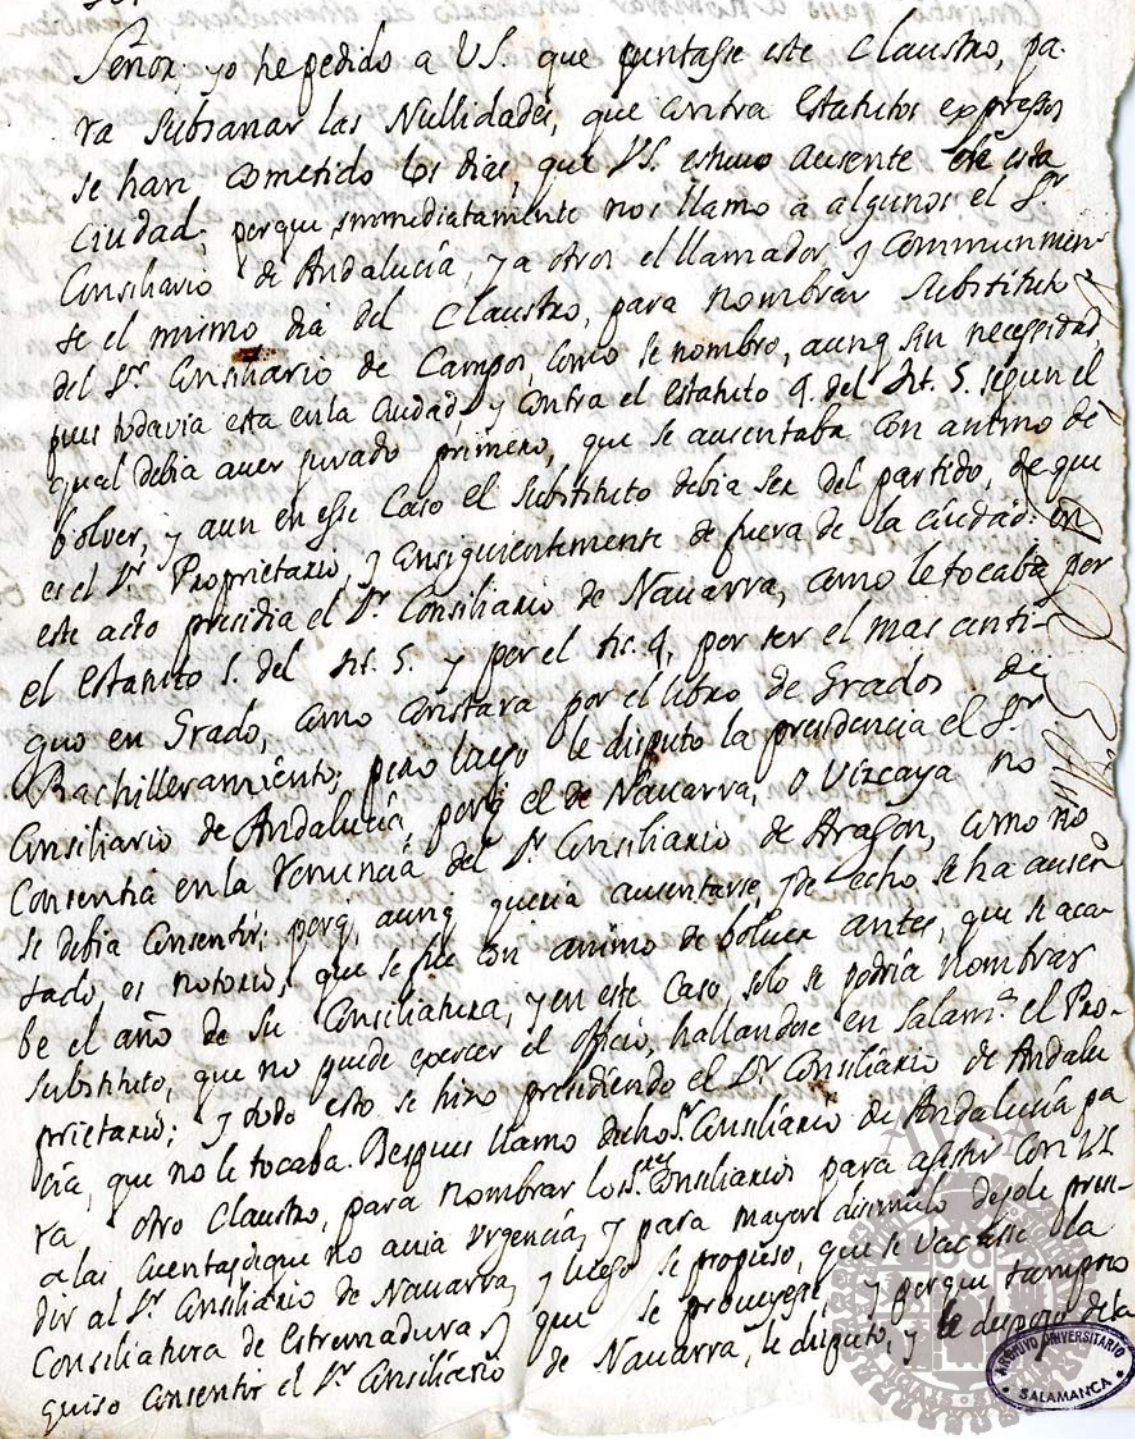 Señor; yo he pedido a VS. que juntasse este Claustro, pa-
ra subsanar las Nullidades, que contra estatutos expressos
se han cometido los dias, que VS. estuuo ausente de esta
Ciudad; porque immediatamente nos llamo a algunos el Sr.
Consiliario de Andalucía, y a otros el llamador, y communmen-
te el mismo dia del Claustro, para nombrar substituto
del Sr. Consiliario de Campos, como se nombro, aunq sin necessidad,
pues todavia esta en la Ciudad, y contra el estatuto 9. del tit. 5. segun el
qual debia auer jurado primero, que se ausentaba con animo de
bolver, y aun en esse caso el substituto debia ser del partido, de que
es el Sr. Proprietario, y consiguientemente de fuera de la ciudad: en
este acto presidia el Sr. Consiliario de Nauarra, como le tocaba por
el estatuto 1. del tit. 5. y por el tit. 9. por ser el mas anti-
guo en Grado, como constara por el libro de Grados de
Bachilleramiento; pero luego le disputo la presidencia el Sr.
Consiliario de Andalucía, porq el de Nauarra, o Vizcaya no
consentia en la renuncia del Sr. Consiliario de Aragon, como no
se debia consentir; porq, aunq queria ausentarse, y de echo se ha ausen
tado, es notorio, que se fue con animo de boluer antes, que se aca-
be el año de su Consiliatura, y en este caso, solo se podria nombrar
substituto, que no puede exercer el officio, hallandose en Salam.ca el Pro-
prietario; y todo esto se hizo presidiendo el Sr. Consiliario de Andalu
cia, que no le tocaba. Despues llamo dicho Sr. Consiliario de Andalucía pa
ra otro Claustro, para nombrar los SS.res Consiliarios para assistir con VS
a las Cuentas, de que no auia vrgencia, y para mayor disimulo dejole presi-
dir al Sr. Consiliario de Nauarra, y luego se propuso, que se vacasse la
Consiliatura de Estremadura, y que se proueyesse, y porque tampoco
quiso consentir el Sr. Consiliario de Nauarra, le disputo, y le despojo de la
ARCHIVO UNIVERSITARIO
SALAMANCA
AUSA